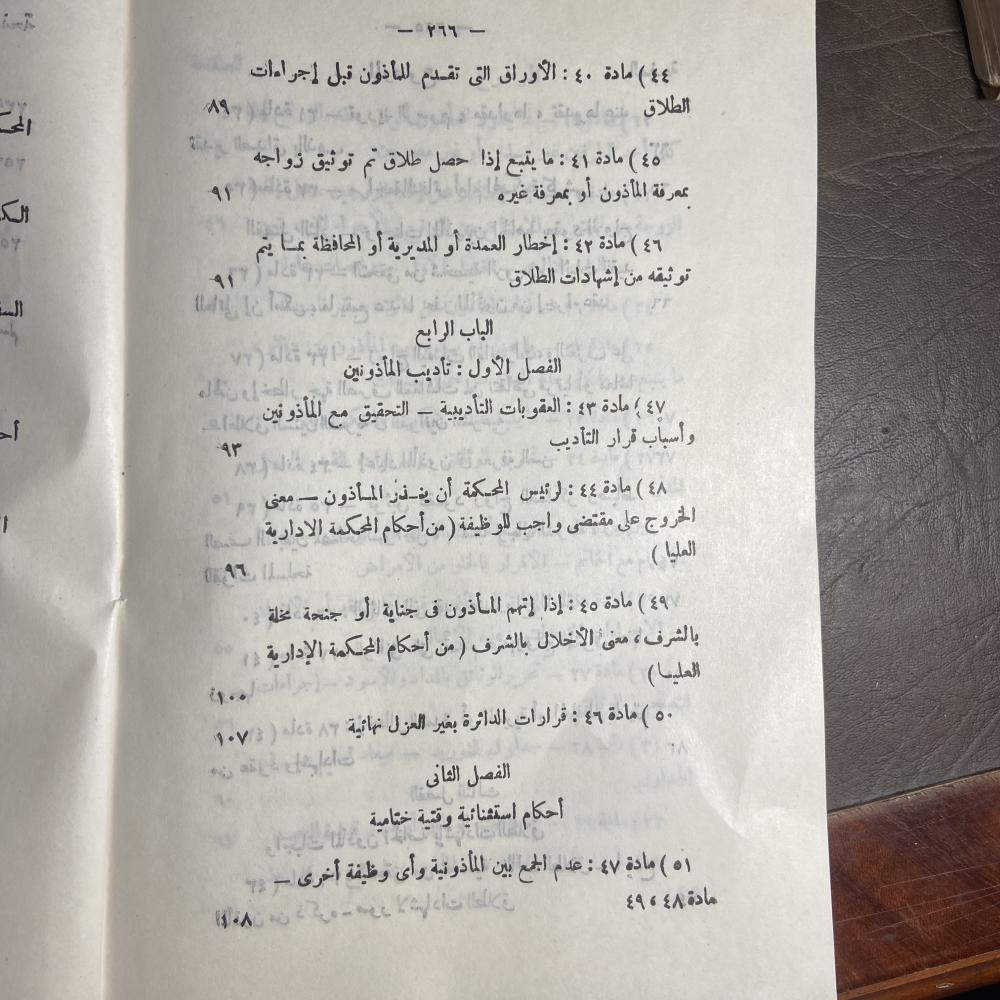 — ٢٦٦ —
٤٤) مادة ٤٠ : الأوراق التى تقدم للمأذون قبل إجراءات
الطلاق ٨٩
٤٥) مادة ٤١ : ما يتبع إذا حصل طلاق تم توثيق زواجه
بمعرفة المأذون أو بمعرفة غيره ٩١
٤٦) مادة ٤٢ : إخطار العمدة أو المديرية أو المحافظة بما يتم
توثيقه من إشهادات الطلاق ٩١
الباب الرابع
الفصل الأول : تأديب المأذونين
٤٧) مادة ٤٣ : العقوبات التأديبية — التحقيق مع المأذونين
وأسباب قرار التأديب ٩٣
٤٨) مادة ٤٤ : لرئيس المحكمة أن ينذر المأذون — معنى
الخروج على مقتضى واجب للوظيفة (من أحكام المحكمة الادارية
العليا) ٩٦
٤٩) مادة ٤٥ : إذا إتهم المأذون فى جناية أو جنحة مخلة
بالشرف ، معنى الأخلال بالشرف (من أحكام المحكمة الإدارية
العليا) ١٠٠
٥٠) مادة ٤٦ : قرارات الدائرة بغير العزل نهائية ١٠٧
الفصل الثانى
أحكام استثنائية وقتية ختامية
٥١) مادة ٤٧ : عدم الجمع بين المأذونية وأى وظيفة أخرى —
مادة ٤٨ ، ٤٩ ١٠٨